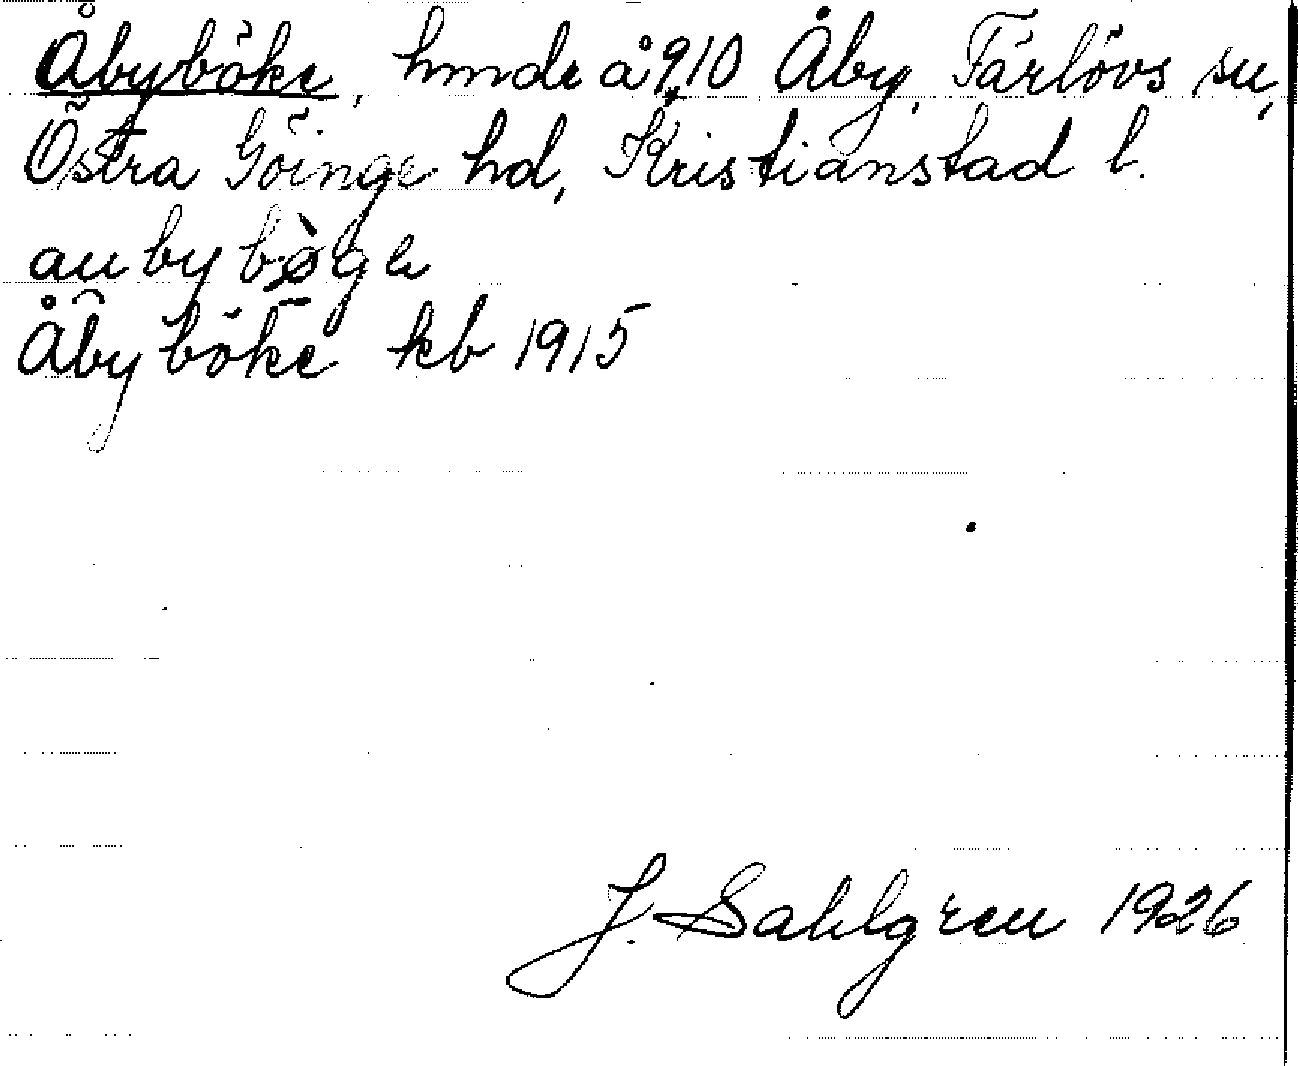 Åbyböke, hmde å 9,10 Åby, Färlövs sn,
Östra Göinge hd, Kristianstad l.
auby bøgə
Åby böke kb 1915
J. Sahlgren 1926